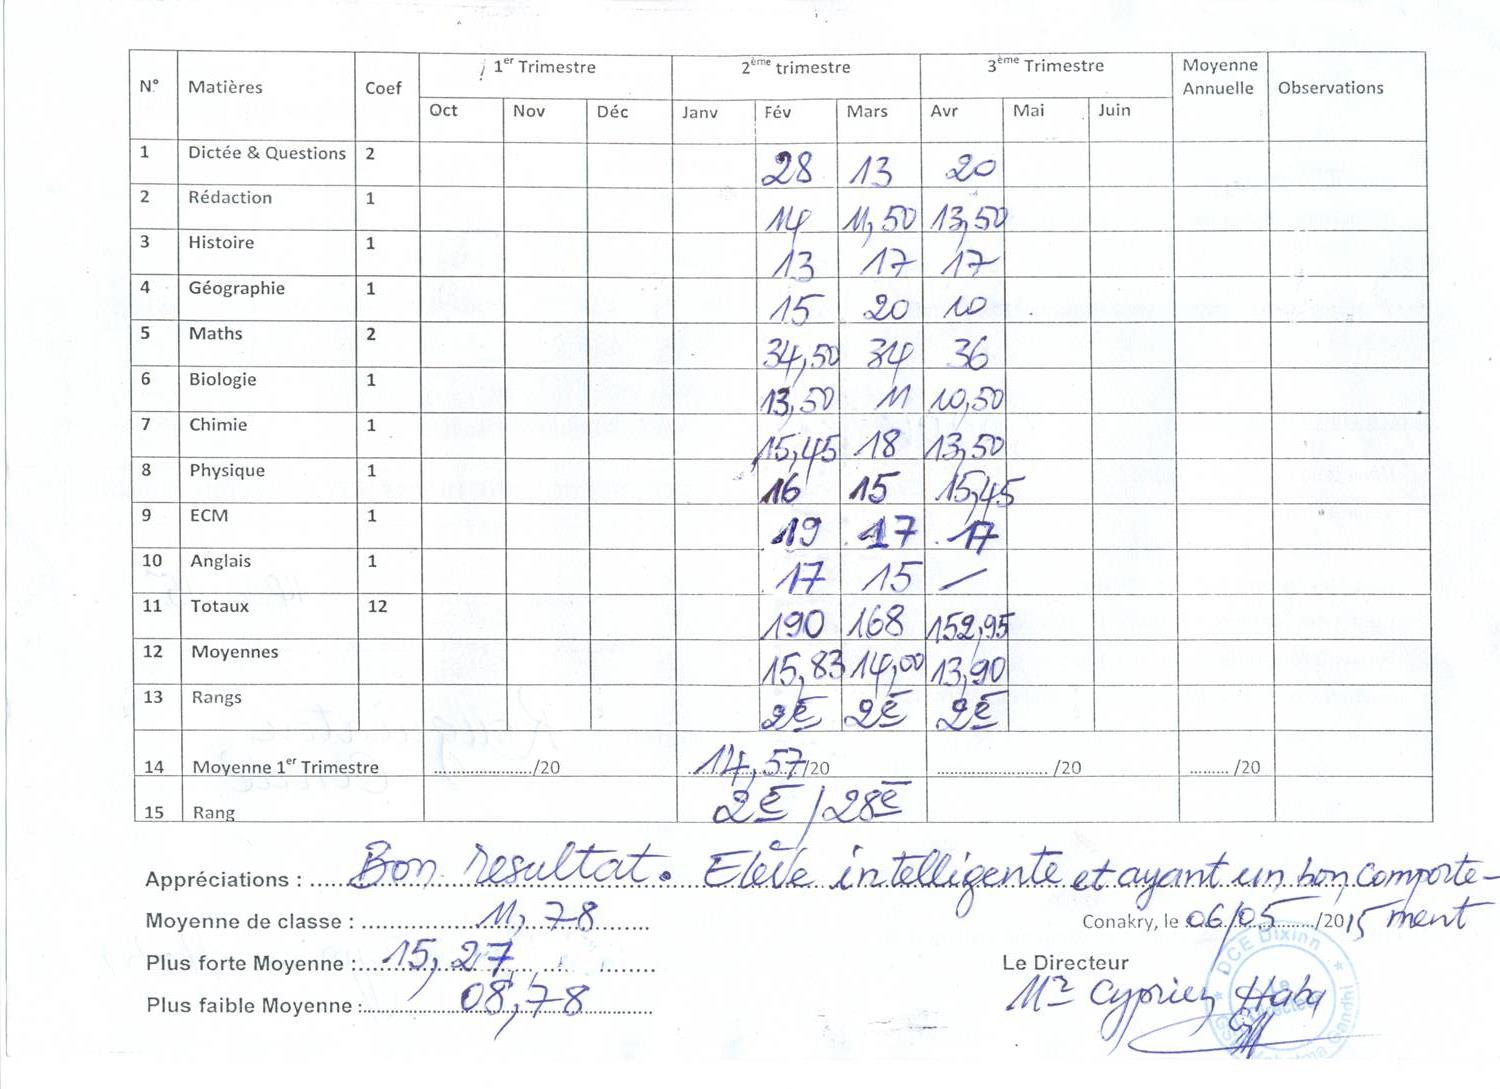 N° Matières Coef 1er Trimestre 2ème trimestre 3ème Trimestre Moyenne Annuelle Observations
Oct Nov Déc Janv Fév Mars Avr Mai Juin
1 Dictée & Questions 2 28 13 20
2 Rédaction 1 14 11,50 13,50
3 Histoire 1 13 17 17
4 Géographie 1 15 20 10
5 Maths 2 34,50 34 36
6 Biologie 1 13,50 11 10,50
7 Chimie 1 15,45 18 13,50
8 Physique 1 16 15 15,45
9 ECM 1 19 17 17
10 Anglais 1 17 15 —
11 Totaux 12 190 168 152,95
12 Moyennes 15,83 14,00 13,90
13 Rangs 2e 2e 2e
14 Moyenne 1er Trimestre ....................../20 14,57/20 ........................ /20 ......... /20
15 Rang 2e / 28e
Appréciations : Bon resultat. Elève intelligente et ayant un bon comporte-
ment
Moyenne de classe : 11,78
Conakry, le 06/05/2015
Plus forte Moyenne : 15,27
Le Directeur
Plus faible Moyenne : 08,78
Mr Cyprien Haba
DCE Dixinn